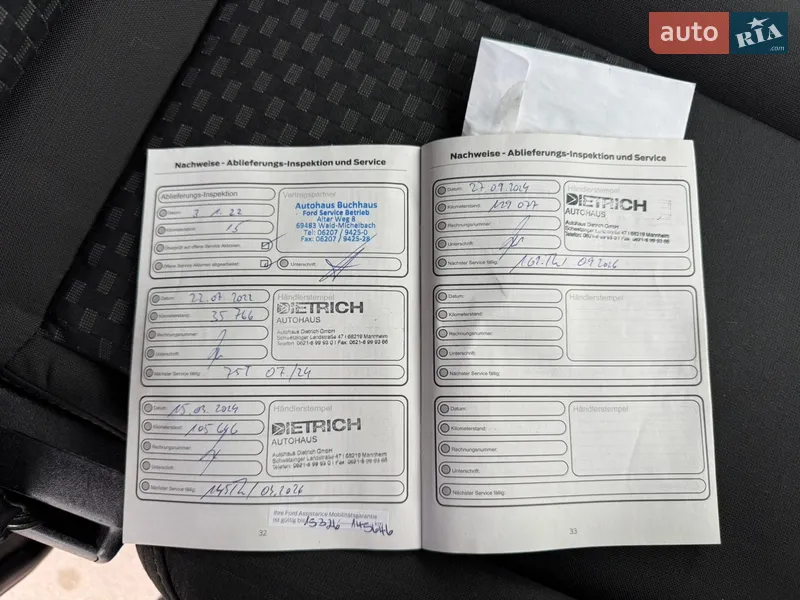 auto RIA .com
Nachweise - Ablieferungs-Inspektion und Service
Ablieferungs-Inspektion
Datum: 3 1. 22
Kilometerstand: 15
Überprüft auf offene Service Aktionen:
Offene Service Aktionen abgearbeitet:
Vertragspartner
Autohaus Buchhaus
Ford Service Betrieb
Alter Weg 8
69483 Wald-Michelbach
Tel: 06207 / 9425-0
Fax: 06207 / 9425-28
Unterschrift:
Datum: 22.07.2022
Kilometerstand: 35 766
Rechnungsnummer:
Unterschrift:
Nächster Service fällig: 75T 07/24
Händlerstempel
DIETRICH
AUTOHAUS
Autohaus Dietrich GmbH
Schwetzinger Landstraße 47 | 68219 Mannheim
Telefon: 0621-8 99 93 0 | Fax: 0621-8 99 93 66
Datum: 15.03.2024
Kilometerstand: 105 646
Rechnungsnummer:
Unterschrift:
Nächster Service fällig: 145T / 03.2026
Händlerstempel
DIETRICH
AUTOHAUS
Autohaus Dietrich GmbH
Schwetzinger Landstraße 47 | 68219 Mannheim
Telefon: 0621-8 99 93 0 | Fax: 0621-8 99 93 66
Ihre Ford Assistance Mobilitätsgarantie
ist gültig bis 15326 145646
32
Nachweise - Ablieferungs-Inspektion und Service
Datum: 27.09.2024
Kilometerstand: 129 077
Rechnungsnummer:
Unterschrift:
Nächster Service fällig: 09.2026
Händlerstempel
DIETRICH
AUTOHAUS
Autohaus Dietrich GmbH
Schwetzinger Landstraße 47 | 68219 Mannheim
Telefon: 0621-8 99 93 0 | Fax: 0621-8 99 93 66
Datum:
Kilometerstand:
Rechnungsnummer:
Unterschrift:
Nächster Service fällig:
Händlerstempel
Datum:
Kilometerstand:
Rechnungsnummer:
Unterschrift:
Nächster Service fällig:
Händlerstempel
33